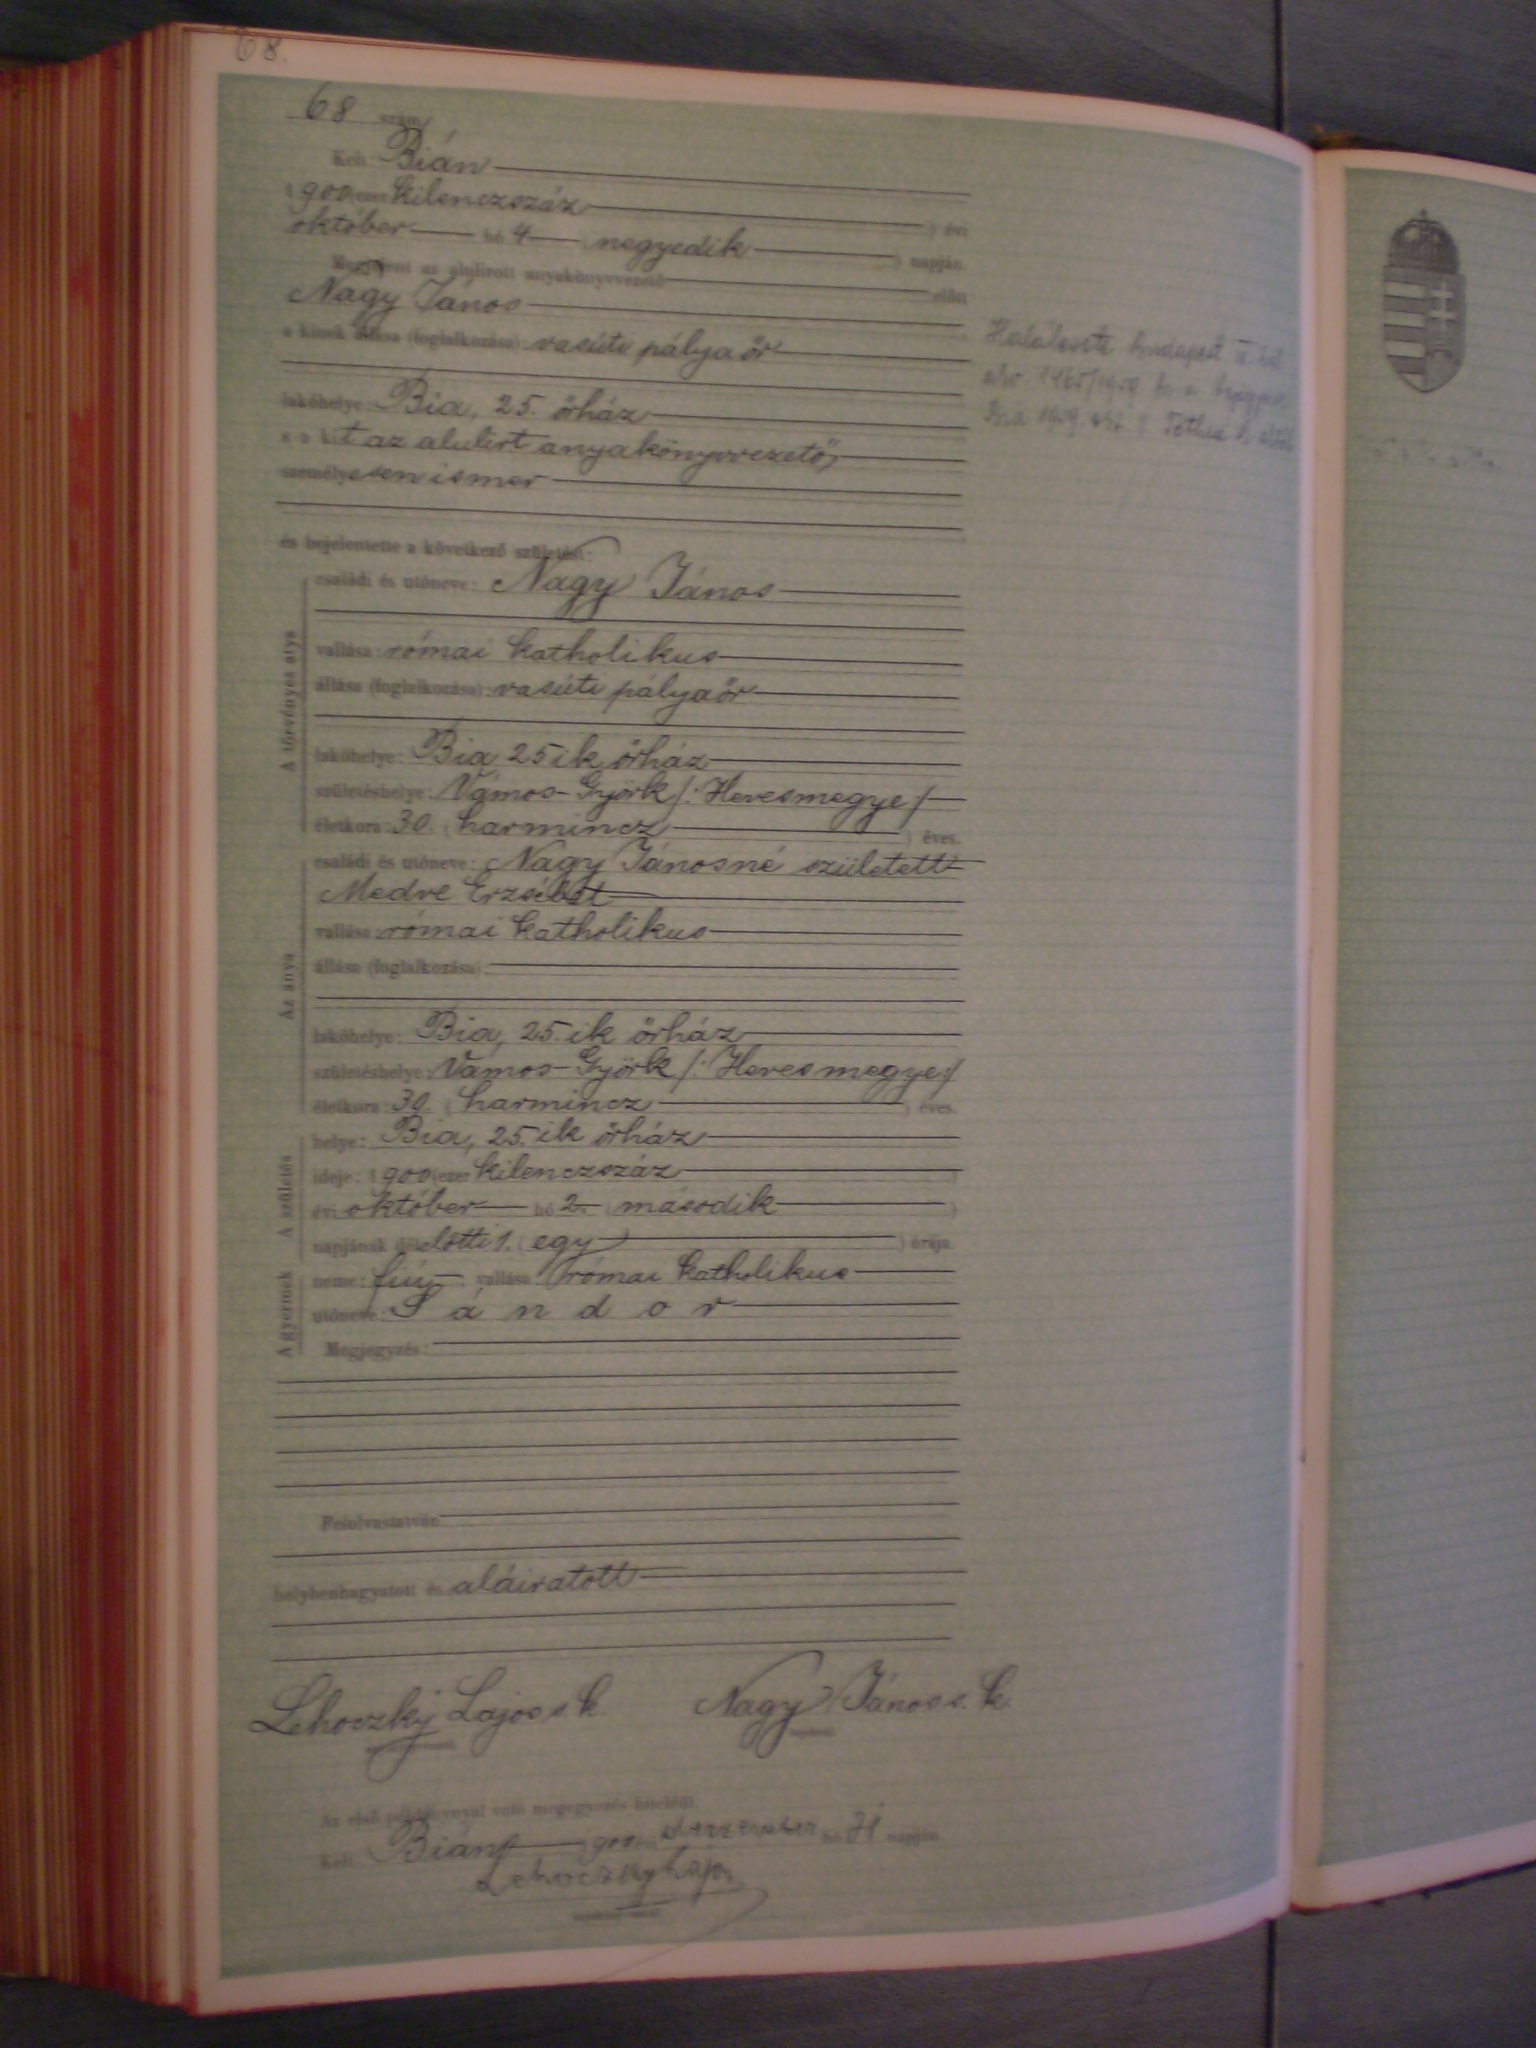 68.
68 szám
Kelt Bián
1900 (ezer kilenczszáz ) évi
október hó 4 negyedik ) napján.
Megjelent az alulirott anyakönyvvezető előtt
Nagy János
a kinek állása (foglalkozása): vasúti pályaőr
lakóhelye: Bia, 25. őrház
s a kit az alulirt anyakönyvvezető,
személyesen ismer
és bejelentette a következő születést:
A törvényes atya
családi és utóneve: Nagy János
vallása: római katholikus
állása (foglalkozása): vasúti pályaőr
lakóhelye: Bia 25ik őrház
születéshelye: Vámos-Györk /: Hevesmegye :/
életkora: 30. ( harmincz ) éves.
Az anya
családi és utóneve: Nagy Jánosné született
Medve Erzsébet
vallása: római katholikus
állása (foglalkozása):
lakóhelye: Bia, 25.ik őrház
születéshelye: Vámos-Györk /: Hevesmegye :/
életkora: 30. ( harmincz ) éves.
A születés
helye: Bia, 25.ik őrház
ideje: 1900 (ezer kilenczszáz )
évi október hó 2. ( második )
napjának délelőtti 1. ( egy ) órája.
A gyermek
neme: fiú, vallása: római katholikus
utóneve: Sándor
Megjegyzés:
Felolvastatván
helybenhagyatott és aláiratott
Lehoczky Lajos s. k. Nagy János s. k.
Az első példánynyal való megegyezés hiteléül.
Kelt Bián 1900. deczember hó 31 napján
Lehoczky Lajos
Halálesete Budapest